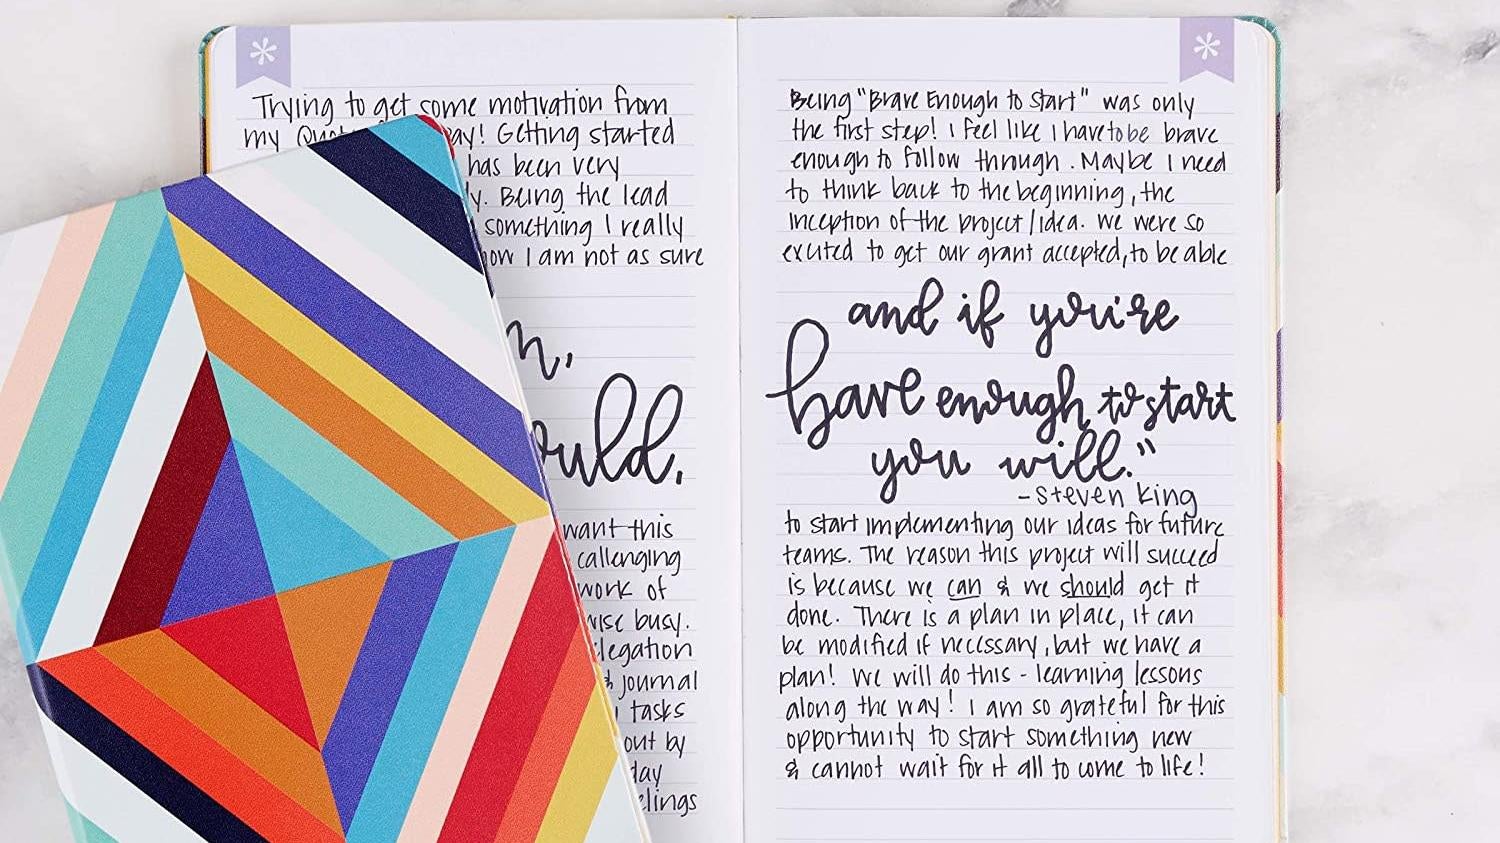 Trying to get some motivation from
my Quote ay! Getting started
has been very
y. Being the lead
something I really
now I am not as sure
n,
ould.
want this
callenging
work of
wise busy.
elegation
& journal
tasks
out by
day
elings
Being "Brave Enough to Start" was only
the first step! I feel like I have to be brave
enough to follow through. Maybe I need
to think back to the beginning, the
inception of the project/idea. We were so
excited to get our grant accepted, to be able
and if you're
brave enough to start
you will."
- Steven King
to start implementing our ideas for future
teams. The reason this project will succeed
is because we can & we should get it
done. There is a plan in place, it can
be modified if necessary, but we have a
plan! We will do this - learning lessons
along the way! I am so grateful for this
opportunity to start something new
& cannot wait for it all to come to life!